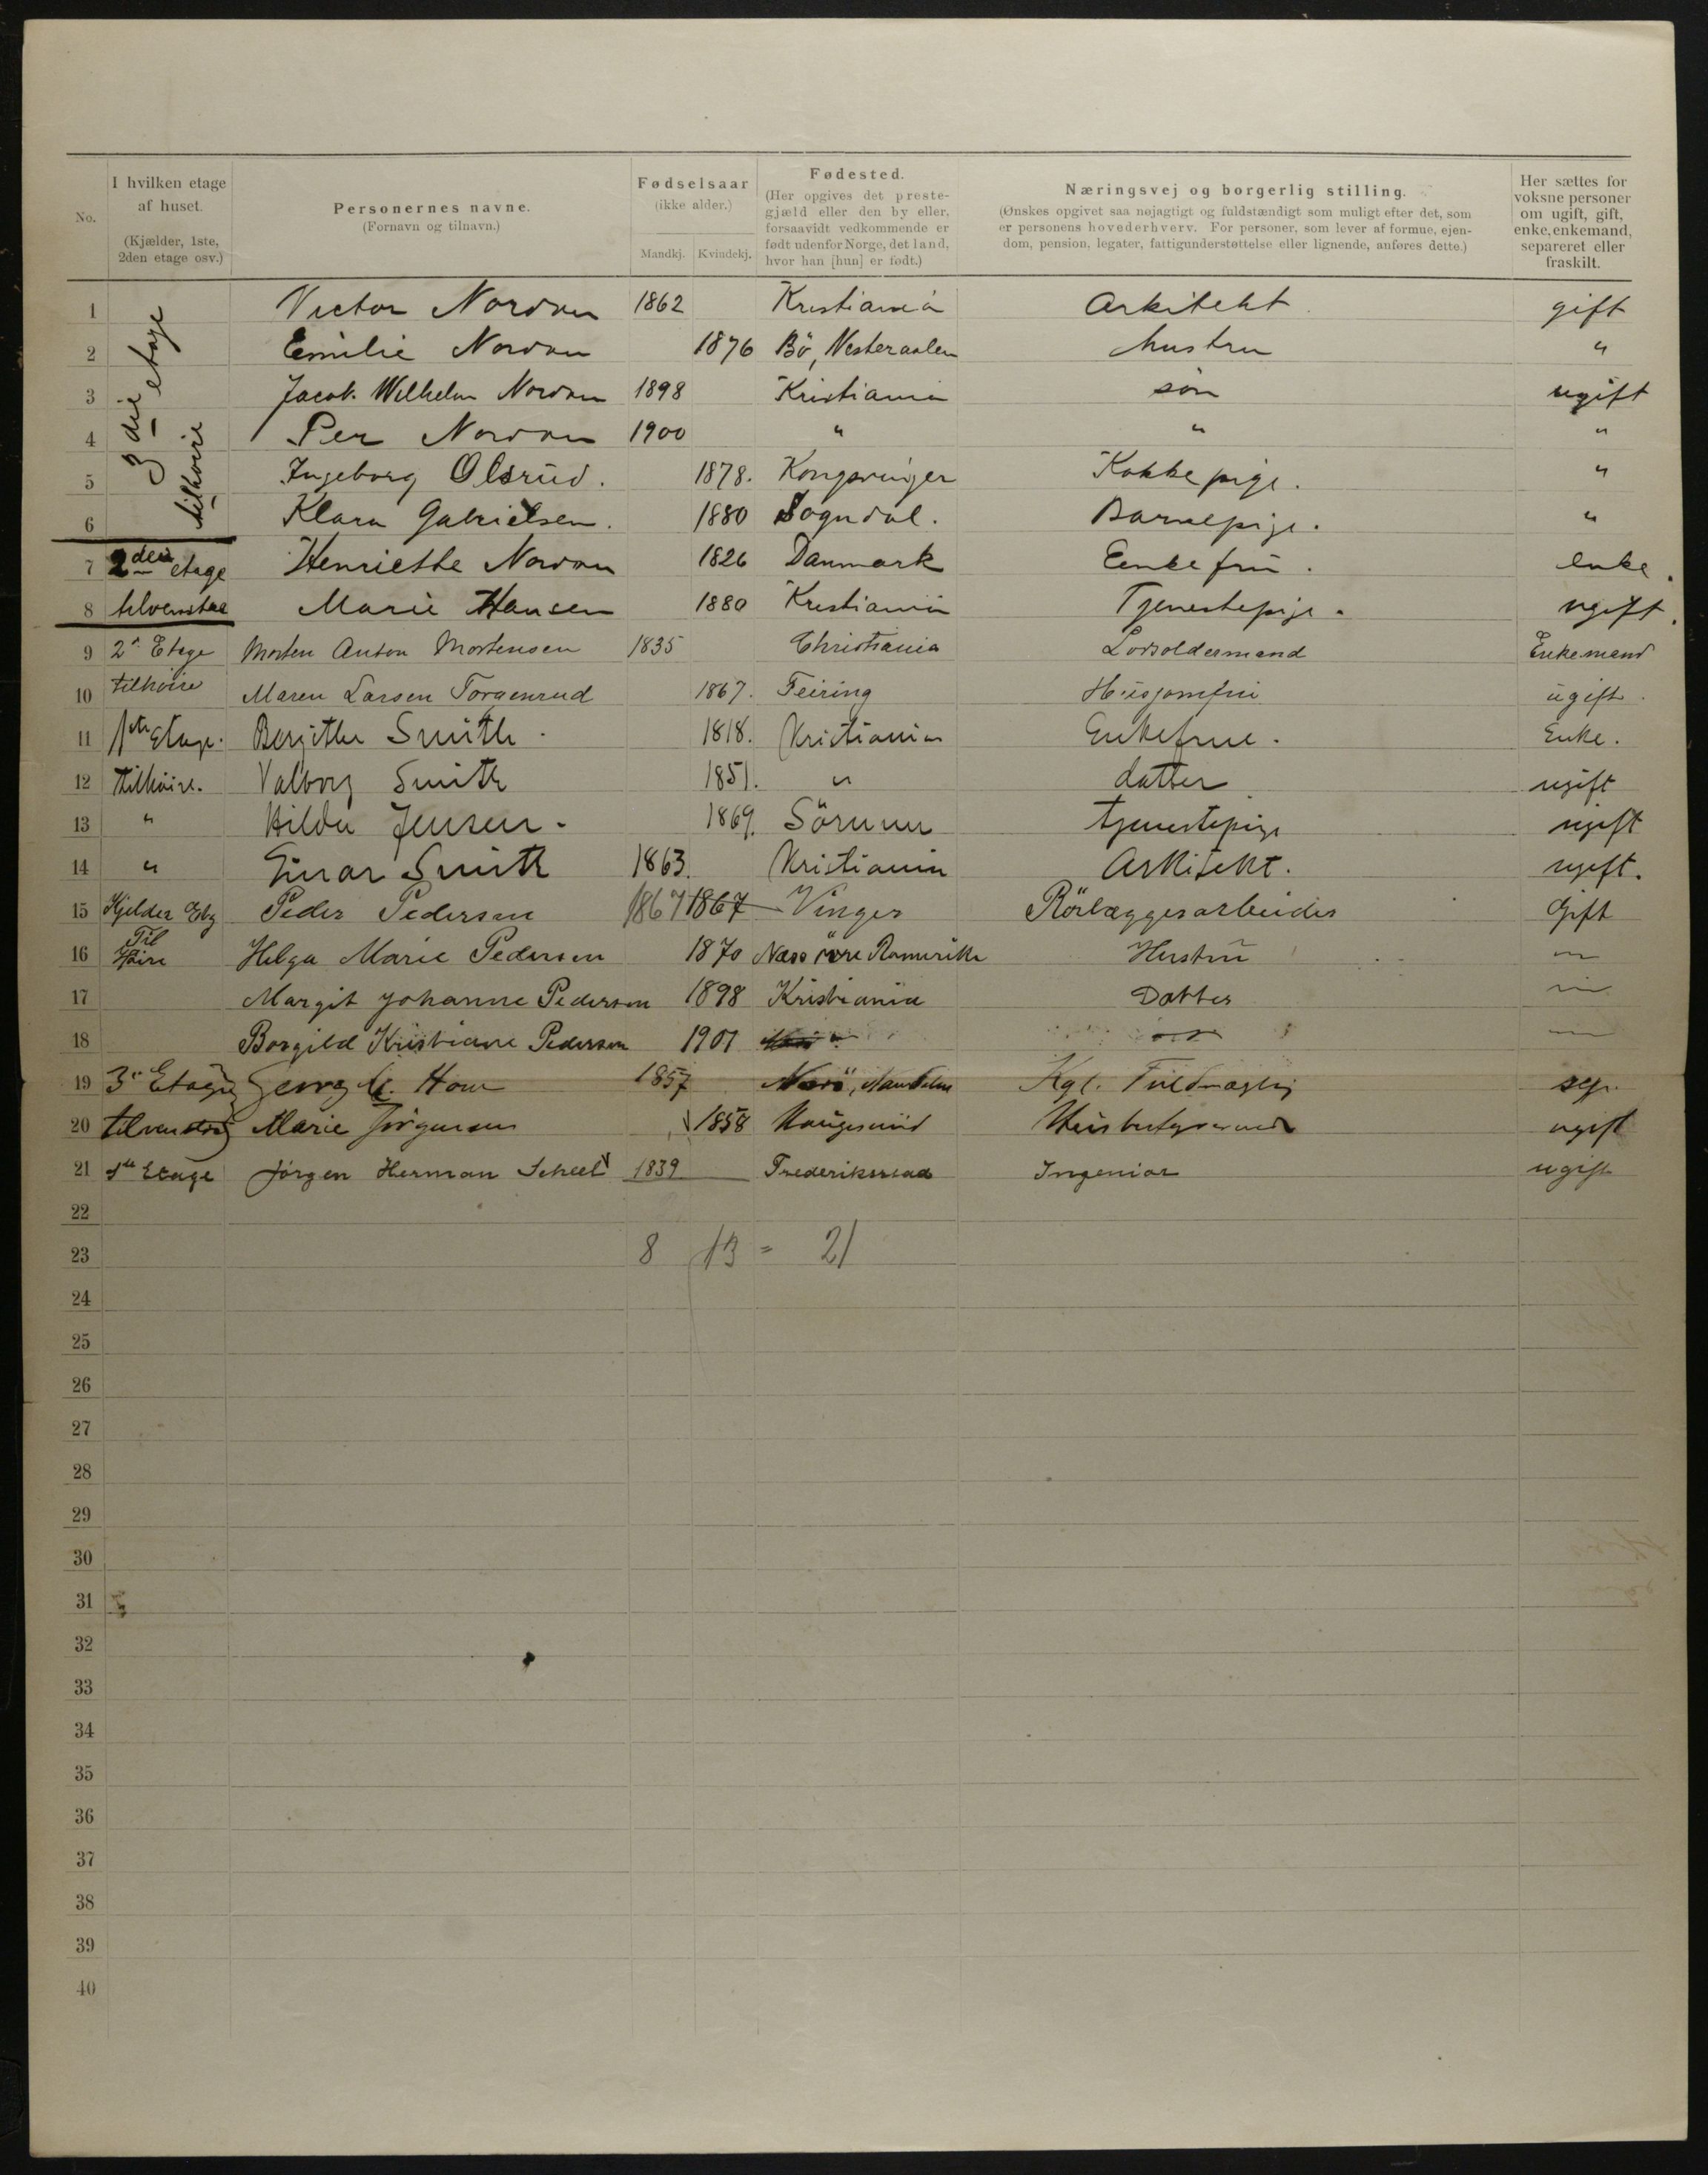 No.
I hvilken etage
af huset.
(Kjælder, 1ste,
2den etage osv.)
Personernes navne.
(Fornavn og tilnavn.)
Fødselsaar
(ikke alder.)
Mandkj. Kvindekj.
Fødested.
(Her opgives det preste-
gjæld eller den by eller,
forsaavidt vedkommende er
født udenfor Norge, det land,
hvor han [hun] er født.)
Næringsvej og borgerlig stilling.
(Ønskes opgivet saa nøjagtigt og fuldstændigt som muligt efter det, som
er personens hovederhverv. For personer, som lever af formue, ejen-
dom, pension, legater, fattigunderstøttelse eller lignende, anføres dette.)
Her sættes for
voksne personer
om ugift, gift,
enke, enkemand,
separeret eller
fraskilt.
3die etage
tilhøire
1 Victor Nordan 1862 Kristiania Arkitekt gift
2 Emilie Nordan 1876 Bö, Vesteraalen hustru "
3 Jacob Wilhelm Nordan 1898 Kristiania sön ugift
4 Per Nordan 1900 " " "
5 Ingeborg Olsrud. 1878. Kongsvinger Kokkepige. "
6 Klara Gabrielsen. 1880 Sogndal. Barnepige. "
7 2den etage Henriette Nordan 1826 Danmark Enkefru. enke.
8 tilvenstre Marie Hansen 1880 Kristiania Tjenestepige. ugift.
9 2n Etage Morten Anton Mortensen 1835 Christiania Lodsoldermand Enkemand
10 tilhøire Maren Larsen Torgensrud 1867. Feiring Husjomfru ugift.
11 1ste Etage. Bergitte Smith. 1818. Kristiania Enkefrue. Enke.
12 tilhöire. Valborg Smith 1851. " datter ugift
13 " Hilda Jensen. 1869. Sörum tjenestepige ugift
14 " Einar Smith 1863. Kristiania Arkitekt. ugift.
15 Kjelder Etg Peder Pedersen 1867 1867 Vinger Rörlæggerarbeider Gift
16 Til Höire Helga Marie Pedersen 1870 Næs övre Romerike Hustru "
17 Margit Johanne Pedersen 1898 Kristiania Datter "
18 Borgild Kristiane Pedersen 1901 " " "
19 3n Etage Georg 1857 Kgl. Fuldmægtig sep.
20 tilvenstre Marie Jörgensen 1858 Haugesund Husbestyrerinde ugift
21 1ste Etage Jörgen Herman Scheel 1839 Frederikstad Ingeniør ugift
22
23 8 13 = 21
24
25
26
27
28
29
30
31
32
33
34
35
36
37
38
39
40